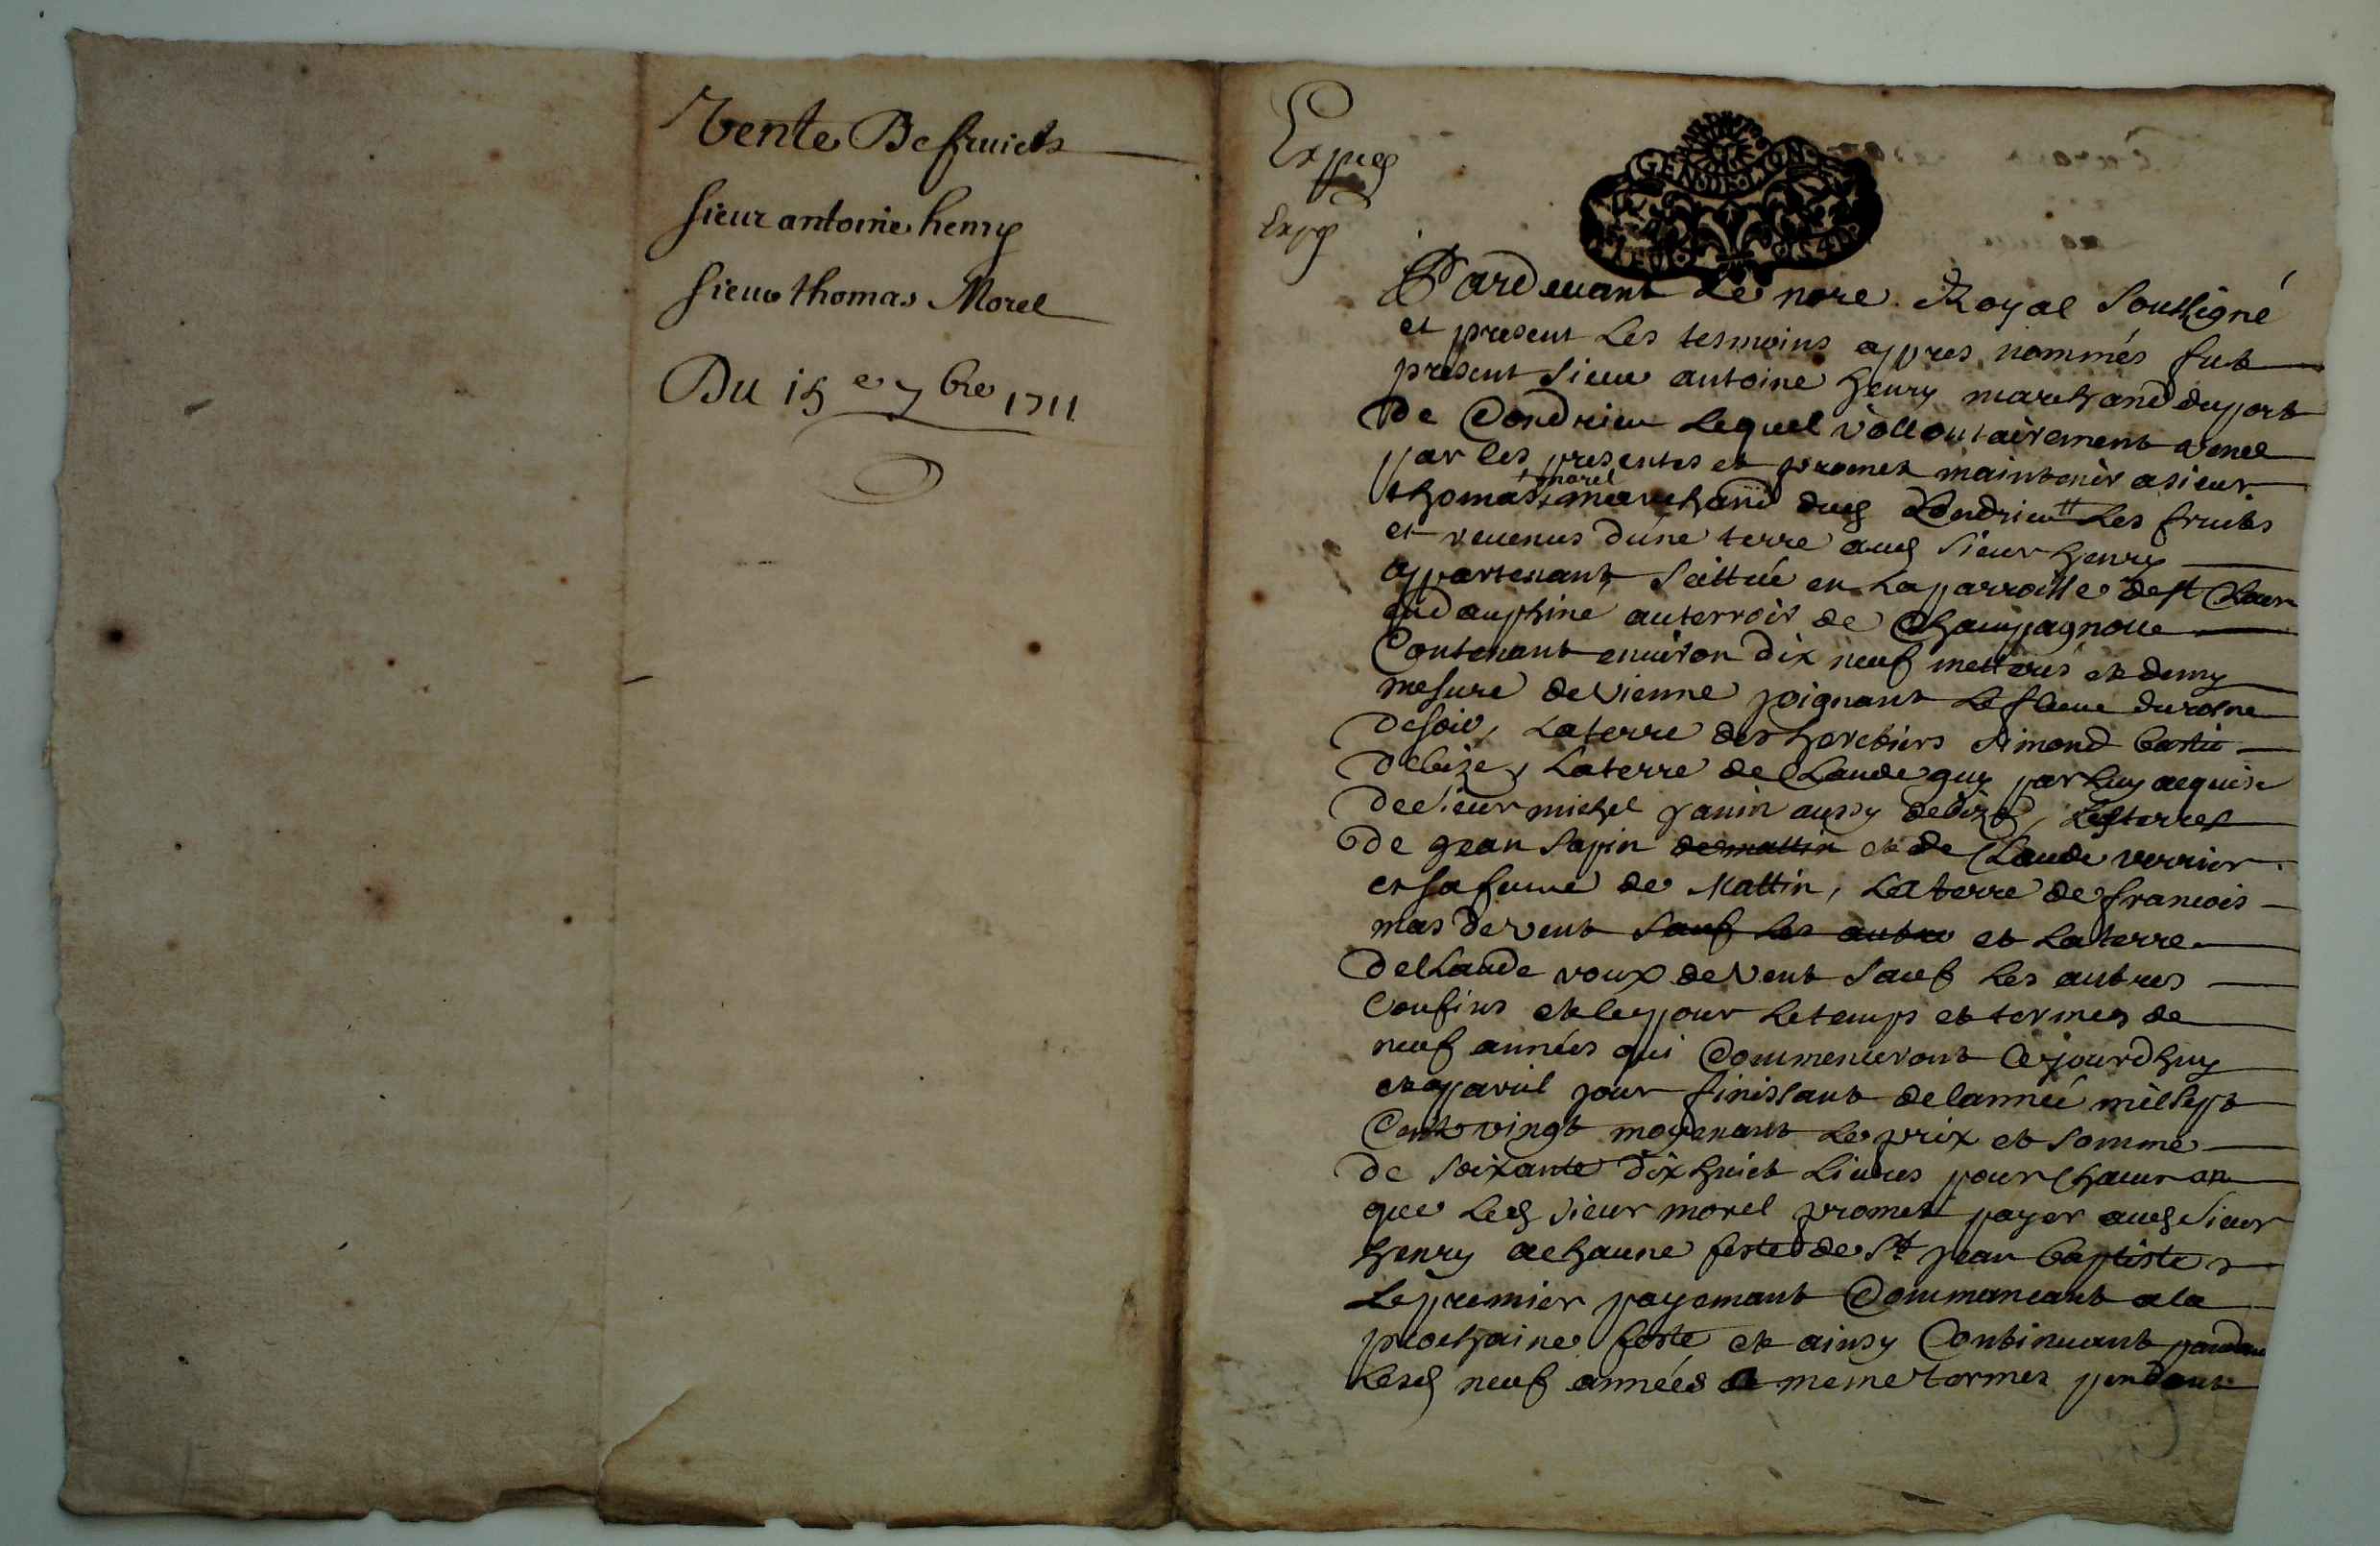 Vente De fruicts
sieur antoine henry
sieur thomas Morel
Du 15e 7bre 1711
Expég
Expg
GENERALITE
DE LYON
Pardeuant Le nore Royal soussigné
et present Les tesmoins appres nommés fut
present sieur antoine henry marchand duport
De Condrieu Lequel vollontairement vend
par les presentes et promet maintenir a sieur
thomas morel marchand dud Condrieu Les fruits
et reuenus dune terre aud sieur henry
appartenant scittuée en La parroisse de st Clair
en dauphiné au terroir de Champagnolle
Contenant enuiron dix neuf metterés et demy
mesure de vienne joignant Le fleuue du rosne
de soir, La terre des heretiers simond bastie
de bize, La terre de Claude guy par Luy acquise
de sieur michel janin aussy de bize, Les terres
De jean sapin de mattin et de Claude verrier
et sa feme de Mattin, La terre de francois
mas de vent sauf les autre et La terre
de Claude roux de vent sauf Les autres
Confins et le pour Le temps et termes de
neuf années qui Commenceront Cejourdhuy
et a pareil jour finissant de lannée mil sept
Cent vingt moyenant Le prix et somme
de soixante dix huict Liures pour chacun an
que Led sieur morel promet payer aud sieur
henry a chacune feste de st jean baptiste
Le premier payemant Commancant a la
prochaine feste et ainsy Continuant
Lesd neuf années a meme termes pendant